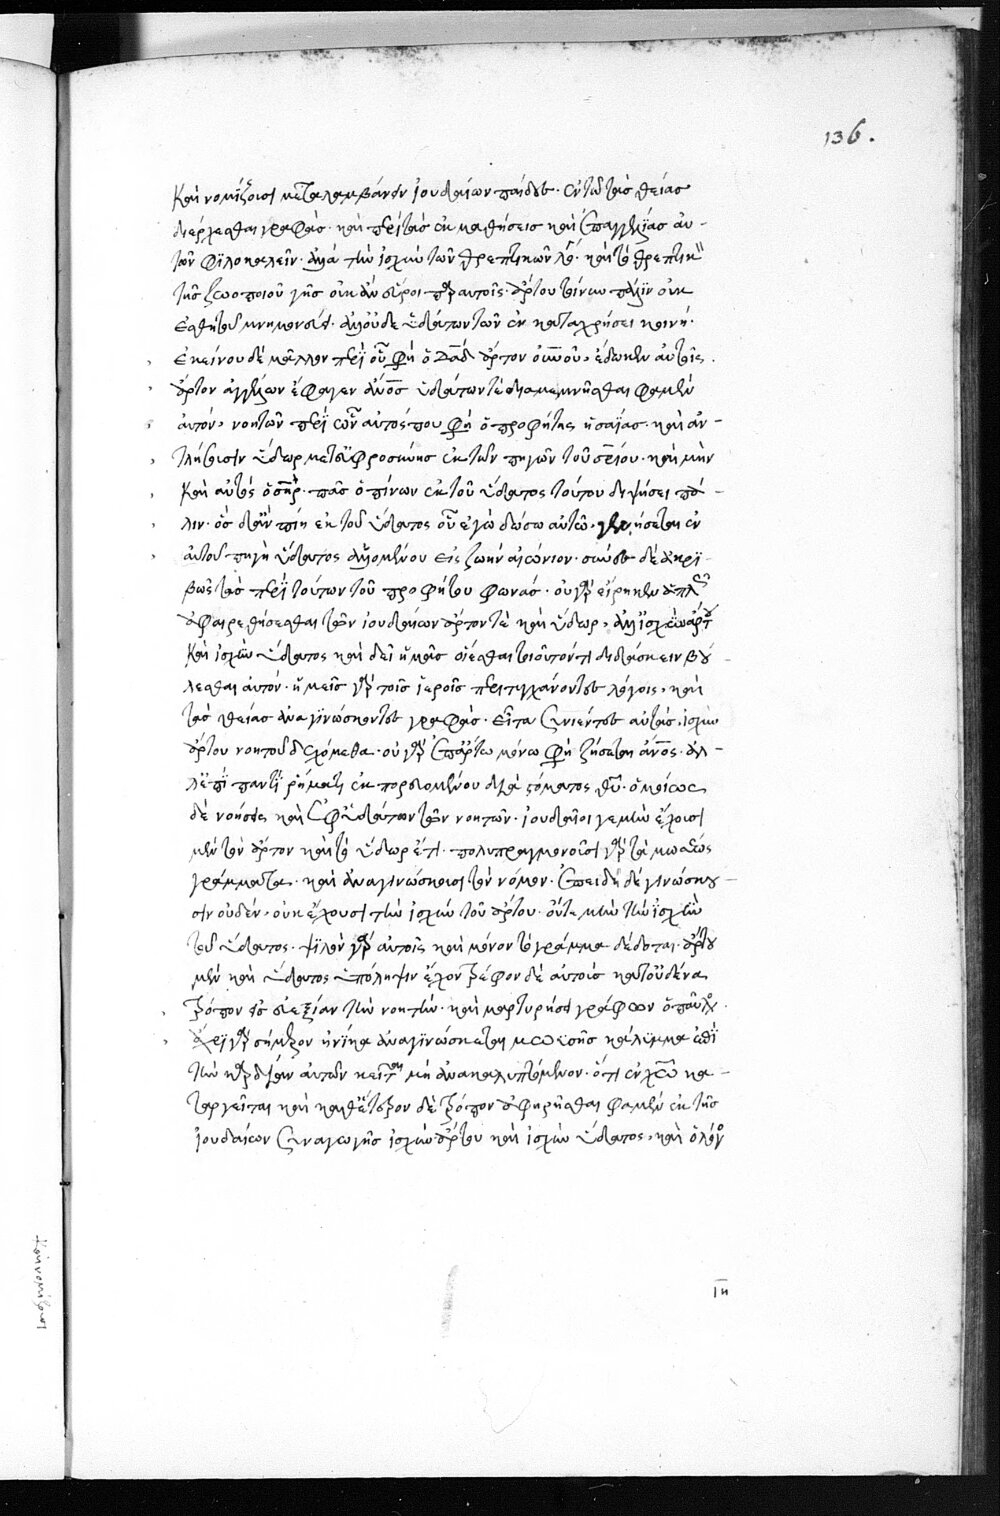 136.
Καὶ νομίζουσι μεταλαμβάνειν ἰουδαίων παῖδες. ἐν τῷ τὰς θείας
διέρχεσθαι γραφὰς. καὶ περὶ τὰς ἐκμαθήσεις καὶ ἐπαγγελίας αὐ-
τῶν φιλοκαλεῖν. ἀλλὰ τὴν ἰσχὺν τῶν θρεπτικῶν καὶ τὸ θρεπτικ
τῆς ζωοποιοῦ γῆς οὐκ ἂν εὕροι παρ αὐτοῖς. ἄρτου τοίνυν πάλιν οὐκ
αἰσθητοῦ μνημονεύει. ἀλλ οὐδὲ ὑδάτων τῶν ἐν καταχρήσει κοινῇ.
Ἐκείνου δὲ μᾶλλον περὶ οὗ φη ὁ δαδ ἄρτον οὐνου, ἔδωκεν αὐτοῖς.
ἄρτον ἀγγέλων ἔφαγεν ἄνος ὑδάτων τὲ διαμεμνῆσθαι φαμὲν
αὐτόν, νοητῶν περὶ ὧν αὐτός που φη ὁ προφήτης ἡσαΐας. καὶ ἀν-
τλήσεσιν ὕδωρ μετ εὐφροσύνης ἐκ τῶν πηγῶν τοῦ σρίου. καὶ μὴν
Καὶ αὐτὸς ὁ σηρ. πᾶς ὁ πίνων ἐκ τοῦ ὕδατος τούτου διψήσει πά-
λιν. ὃς δ ἂν πίῃ ἐκ τοῦ ὕδατος οὗ ἐγὼ δώσω αὐτῶ, γενήσεται ἐν
αὐτοῦ πηγὴ ὕδατος ἁλλομένου εἰς ζωὴν αἰώνιον. σύνες δὲ ἀκρι-
βῶς τὰς περὶ τούτων τοῦ προφήτου φωνάς. οὐ γὰρ εἴρηκεν ἁπλς
ἀφαιρεθήσεσθαι τῶν ἰουδαίων ἄρτον τὲ καὶ ὕδωρ, ἀλλ ἰσχὺν ἄρτ
Καὶ ἰσχὺν ὕδατος καὶ δεῖ ἡμᾶς οἴεσθαι τοιοῦτόν τι διδάσκειν βού-
λεσθαι αὐτόν. ἡμεῖς γὰρ τοῖς ἱεροῖς περιτυγχάνοντες λόγοις, καὶ
τὰς θείας ἀναγινώσκοντες γραφάς. εἶτα συνιέντες αὐτάς, ἰσχὺν
ἄρτου νοητοῦ δεχόμεθα. οὐ γὰρ ἐπ ἄρτω μόνω φη ζήσεται ἄνος. ἀλ-
λ ἐπὶ παντὶ ῥήματι ἐκπορευομένου διὰ στόματος θυ. ὁμοίως
δὲ νοήσεις καὶ ἐφ ὑδάτων τῶν νοητῶν. ἰουδαῖοι γεμὴν ἔχουσι
μὲν τὸν ἄρτον καὶ τὸ ὕδωρ ἔτι. πολυπραγμονοῦσι γὰρ τὰ μωσέως
γράμματα. καὶ ἀναγινώσκουσι τὸν νόμον. ἐπειδὴ δὲ γινώσκου-
σιν οὐδέν, οὐκ ἔχουσι τὴν ἰσχὺν τοῦ ἄρτου. οὔτε μὴν τὴν ἰσχὺν
τοῦ ὕδατος. ψιλὸν γὰρ αὐτοῖς καὶ μόνον τὸ γράμμα δέδοται. ἄρτου
μὲν καὶ ὕδατος ὑπόληψιν ἔχον τρέφον δὲ αὐτοὺς κατ οὐδένα
τρόπον εἰς εὐεξίαν τὴν νοητήν. καὶ μαρτυρήσει γράφων ὁ παῦλο.
ἄχρι γὰρ σήμερον ἡνίκα ἀναγινώσκεται μωϋσῆς κάλυμμα ἐπὶ
τὴν καρδίαν αὐτῶν κεῖται μὴ ἀνακαλυπτόμενον. ὅτι ἐν χω κα-
ταργεῖται καὶ καθ ἕτερον δὲ τρόπον ἀφῃρῆσθαι φαμὲν ἐκ τῆς
ἰουδαίων συναγωγῆς ἰσχὺν ἄρτου καὶ ἰσχὺν ὕδατος, καὶ ὁ λόγ